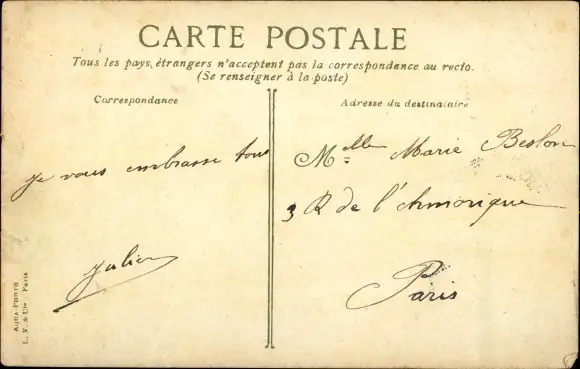 CARTE POSTALE
Tous les pays, étrangers n'acceptent pas la correspondance au recto.
(Se renseigner à la poste)
Correspondance
Je vous embrasse tous
Julien
Adresse du destinataire
Melle Marie Beslon
3 R de l'Armorique
Paris
AQUA-PHOTO
L. V. & Cie Paris